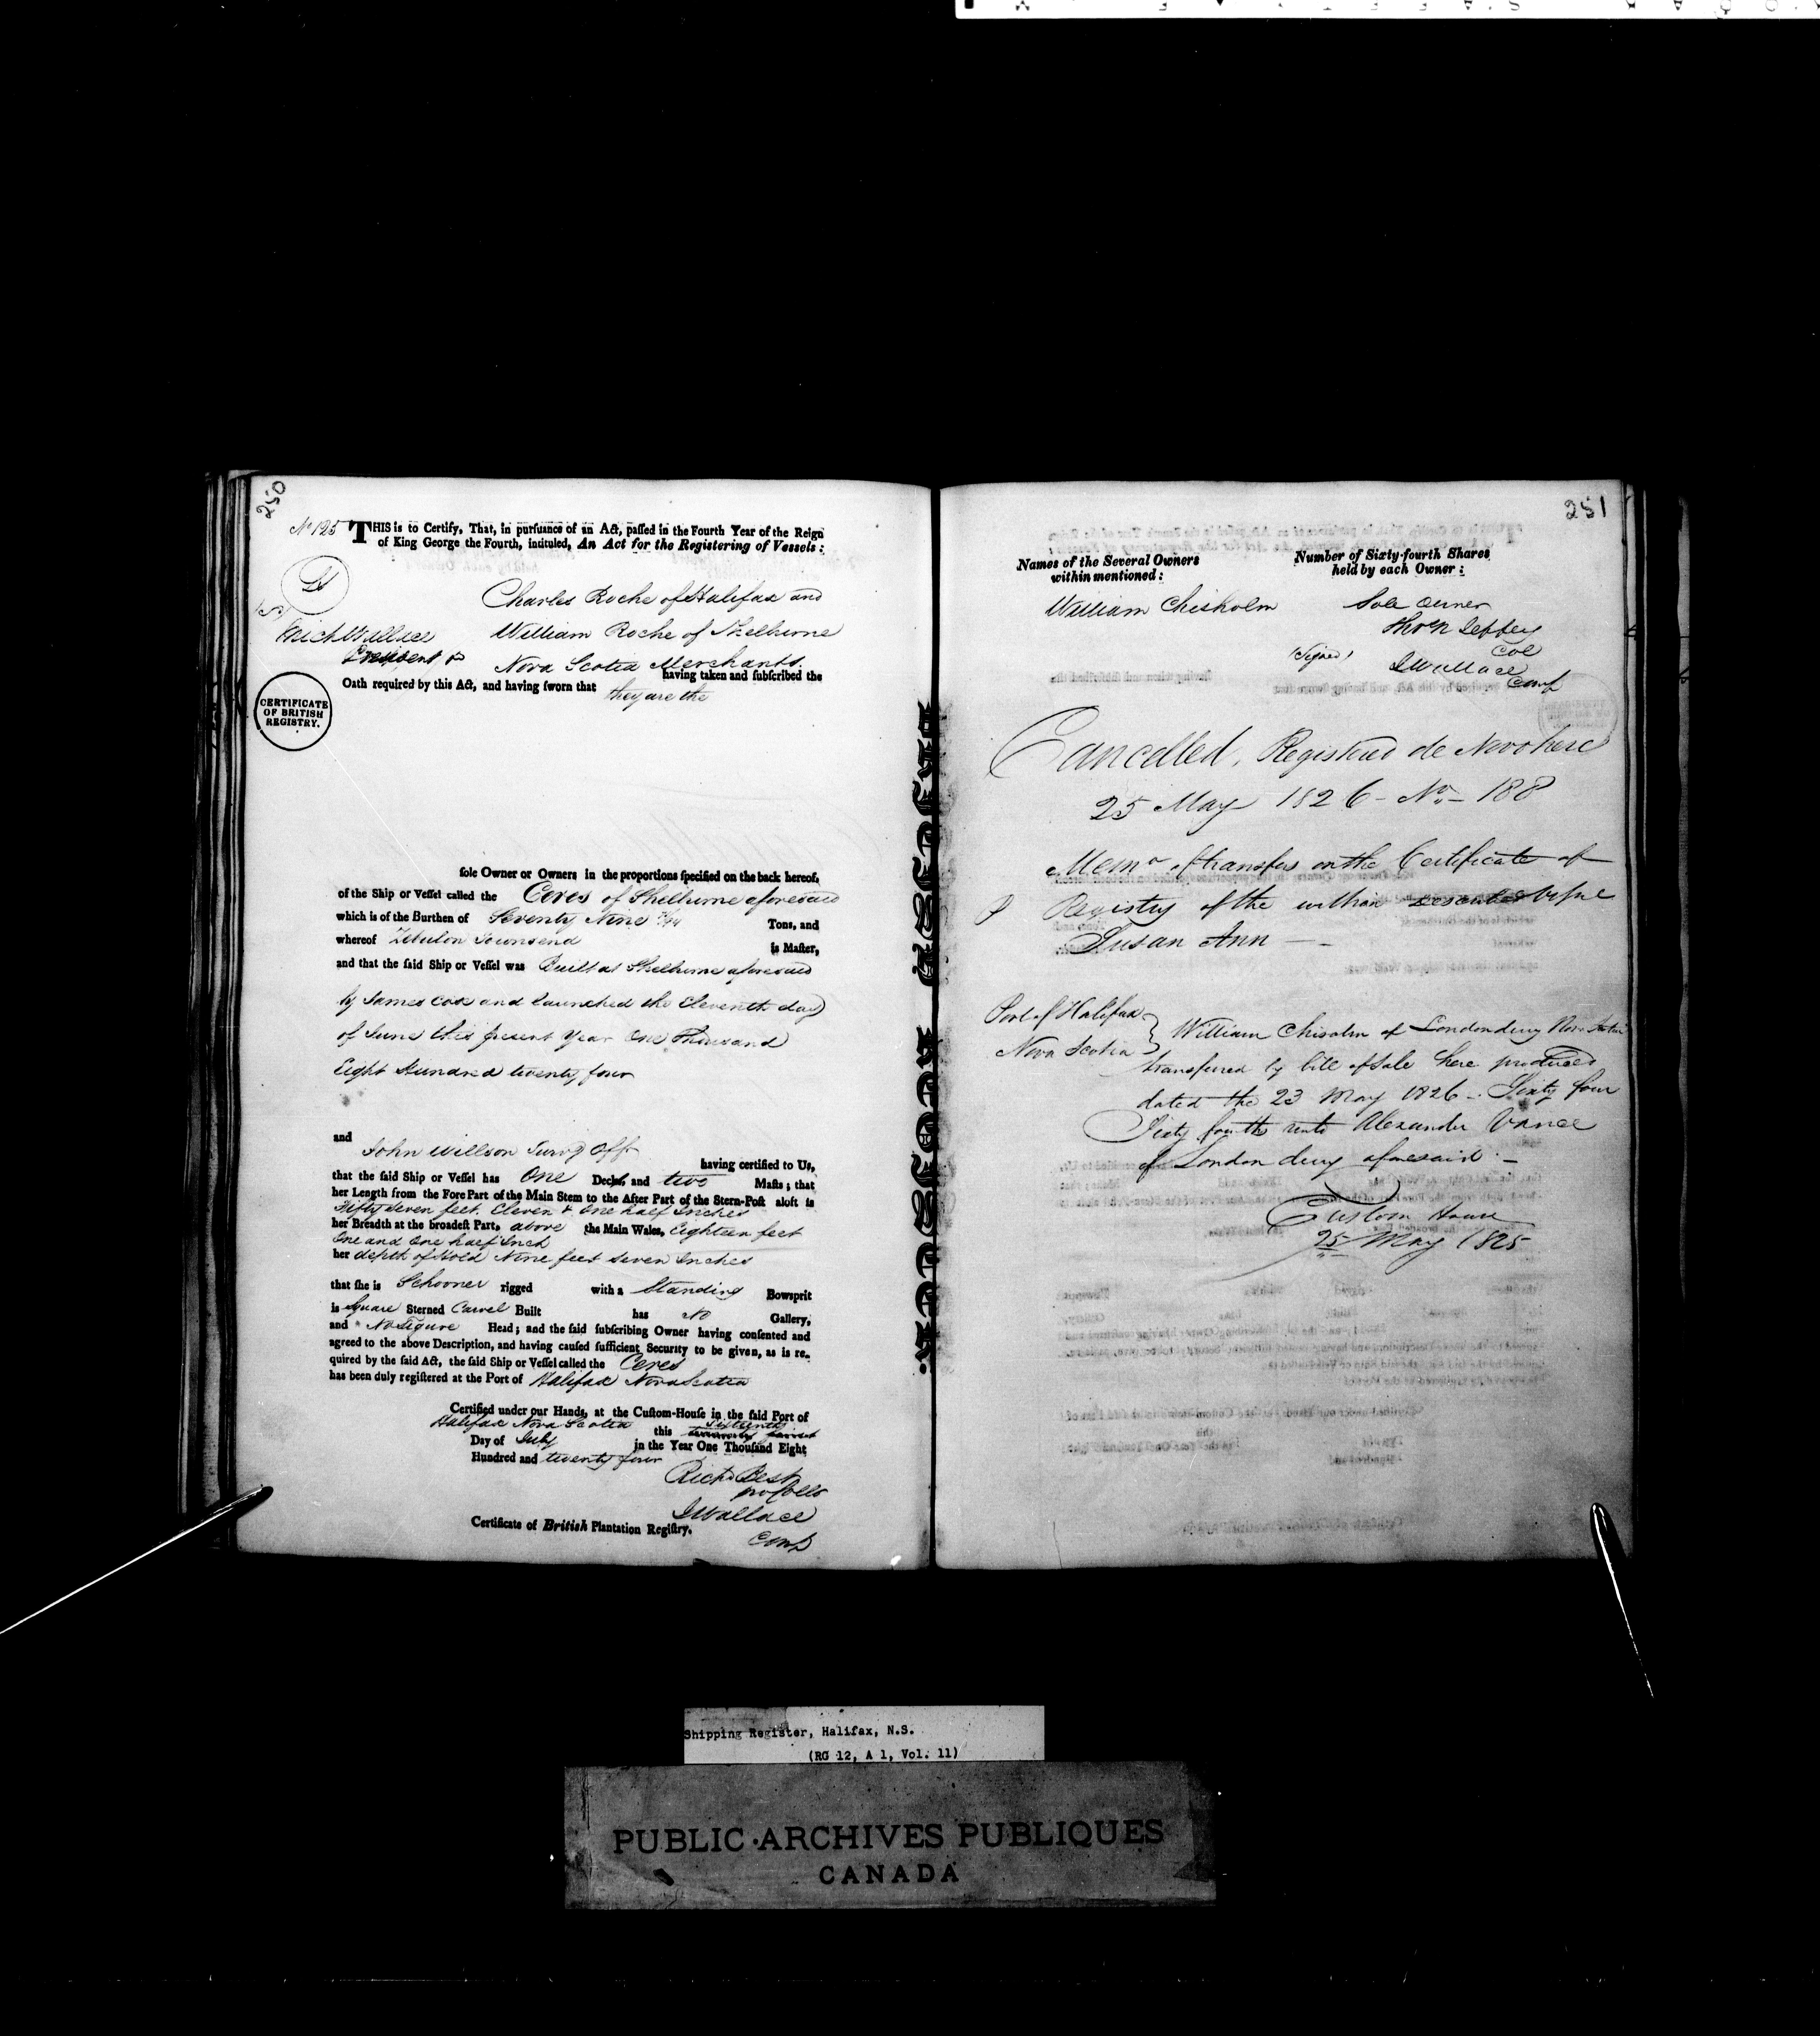 250
No 125 THIS is to Certify, That, in pursuance of an Act, passed in the Fourth Year of the Reign
of King George the Fourth, intituled, An Act for the Registering of Vessels:
Charles Roche of Halifax and
Mich Wallace William Roche of Shelburne
President Nova Scotia Merchants
having taken and subscribed the
Oath required by this Act, and having sworn that they are the
CERTIFICATE
OF BRITISH
REGISTRY.
sole Owner or Owners in the proportions specified on the back hereof,
of the Ship or Vessel called the Ceres of Shelburne aforesaid
which is of the Burthen of Seventy Nine Tons, and
whereof Zebulon Townsend is Master,
and that the said Ship or Vessel was Built at Shelburne aforesaid
by James Cox and launched the Eleventh day
of June this present Year One Thousand
Eight Hundred twenty four
and
John Willson Survg Offr having certified to Us,
that the said Ship or Vessel has One Deck, and two Masts; that
her Length from the Fore Part of the Main Stem to the After Part of the Stern-Post aloft is
Fifty seven feet. Eleven & One half Inches
her Breadth at the broadest Part, above the Main Wales, Eighteen feet
One and One half Inch
her depth of Hold Nine feet seven Inches
that she is Schooner rigged with a Standing Bowsprit
is Square Sterned Carvel Built has No Gallery,
and No Figure Head; and the said subscribing Owner having consented and
agreed to the above Description, and having caused sufficient Security to be given, as is re-
quired by the said Act, the said Ship or Vessel called the Ceres
has been duly registered at the Port of Halifax Nova Scotia
Certified under our Hands, at the Custom-House in the said Port of
Halifax Nova Scotia this Sixteenth
Day of July in the Year One Thousand Eight
Hundred and twenty four
Richd Best
pro Collr
J Wallace
Comp
Certificate of British Plantation Registry.
251
Names of the Several Owners
within mentioned:
Number of Sixty-fourth Shares
held by each Owner:
William Chisholm Sole Owner
Thos N Jeffery
Col
(Signed) J Wallace
Comp
Cancelled, Registered de Novo here
25 May 1826 - No - 188
Memo of transfer on the Certificate of
Registry of the within Vessel
Susan Ann -
Port of Halifax
Nova Scotia } William Chisolm of Londonderry Nova Scotia
transferred by bill of Sale here produced
dated the 23 May 1826 - Sixty four
Sixty fourths unto Alexander Vance
of Londonderry aforesaid -
Custom House
25 May 1825
Shipping Register, Halifax, N.S.
(RG 12, A 1, Vol. 11)
PUBLIC ARCHIVES PUBLIQUES
CANADA